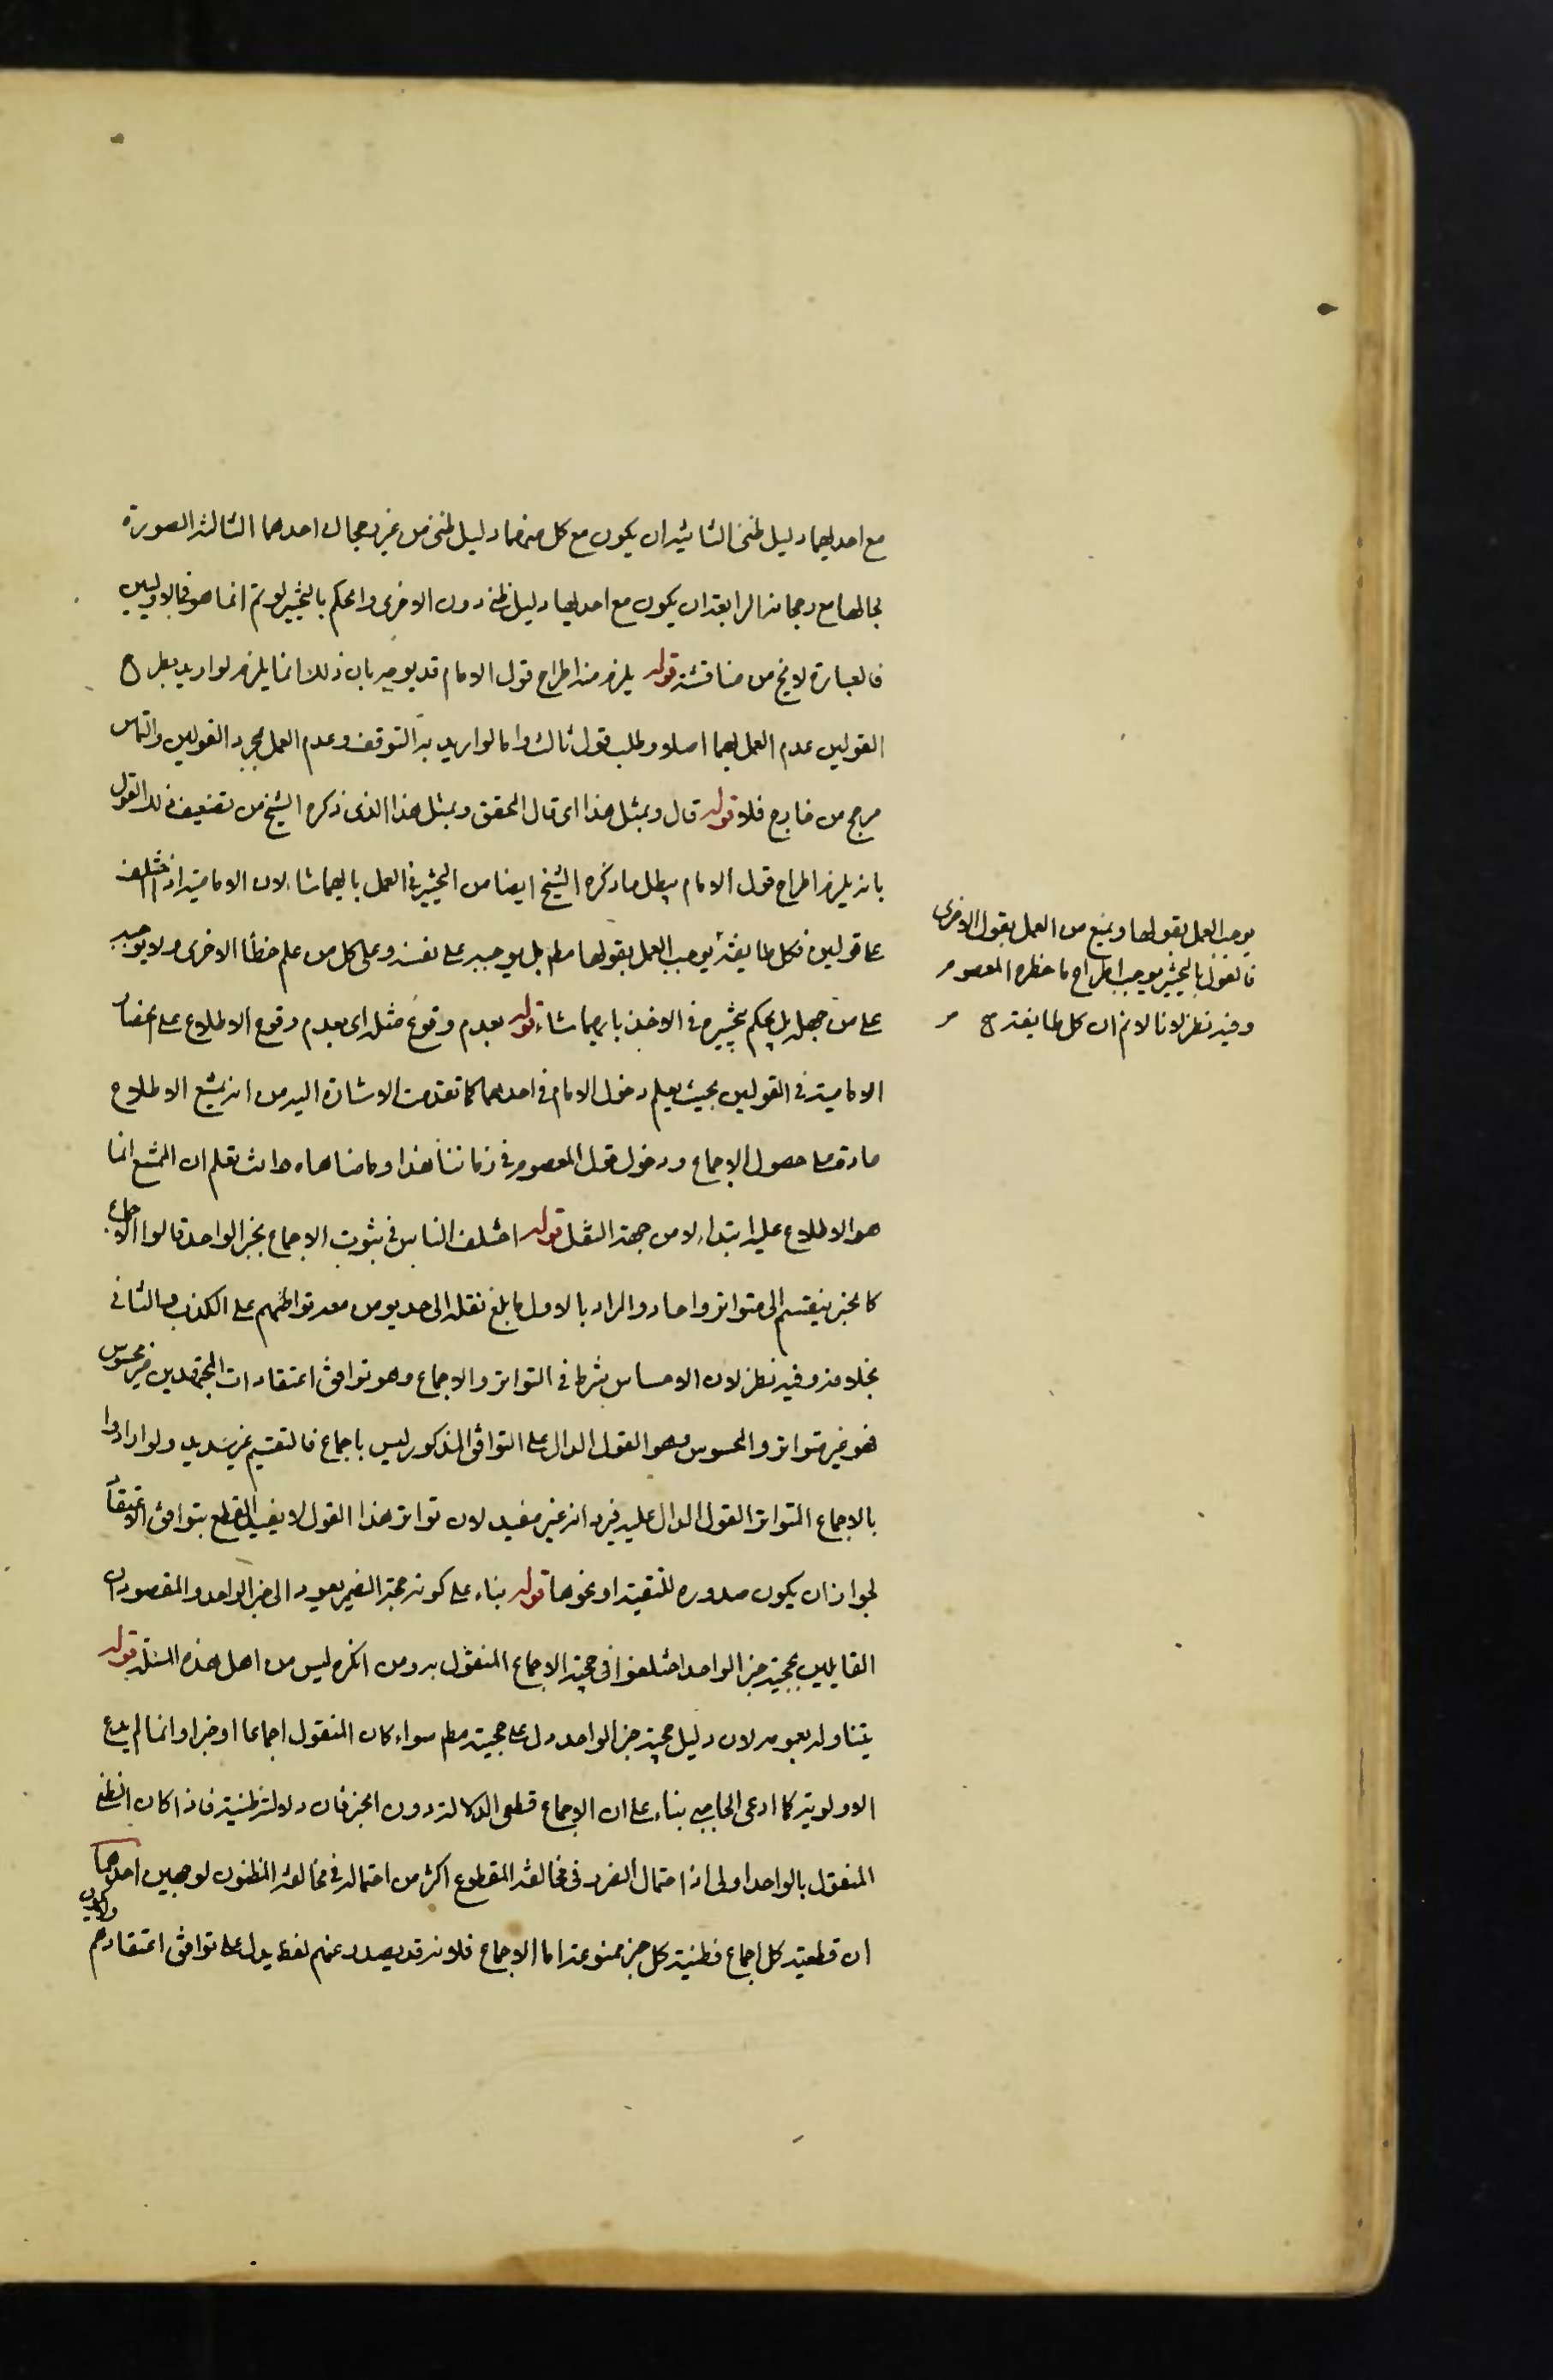 مع احدیهما دلیل ظنی الثانیة ان یکون مع کل منهما دلیل ظنی من غیر رجحان احدهما الثالثة الصورة
بحالها مع رجحانه الرابعة ان یکون مع احدیهما دلیل ظنه دون الاخری والحکم بالتخییر لو تم انما هو فی الاولیین
فالعبارة لا یخ من مناقشة قوله یلزم منه اطراح قول الامام قد یوجه بان ذلک انما یلزم لو ارید بطرح
القولین عدم العمل بهما اصلا وطلب قول ثالث واما لو ارید به التوقف وعدم العمل بمجرد القولین والتماس
مرجح من خارج فلا قوله قال وبمثل هذا ای قال المحقق وبمثل هذا الذی ذکره الشیخ من تضعیف ذلک القول
بانه یلزم اطراح قول الامام یبطل ما ذکره الشیخ ایضا من التخییر فی العمل بایهما شاء لان الامامیة اذا اختلفت
علی قولین فکل طایفة یوجب العمل بقولها مطم بل یوجبه علی نفسه وعلی کل من علم خطأ الاخری ولا یوجبه
علی من جهله بل یحکم بتخییره فی الاخذ بایهما شاء قوله بعدم وقوع مثله ای بعدم وقوع الاطلاع علی انحصار
الامامیة فی القولین بحیث یعلم دخول الامام فی احدهما کما تقدمت الاشارة الیه من انه یمتنع الاطلاع
عادة علی حصول الاجماع ودخول قول المعصوم فی زماننا هذا وما ضاهاه وانت تعلم ان الممتنع انما
هو الاطلاع علیه ابتداء لا من جهة النقل قوله اختلف الناس فی ثبوت الاجماع بخبر الواحد قالوا الاجماع
کالخبر ینقسم الی متواتر واحاد والمراد بالاول ما بلغ نقله الی حد یومن معه تواطئهم علی الکذب والثانی
بخلافه وفیه نظر لان الاحساس شرط فی التواتر والاجماع وهو توافق اعتقادات المجتهدین غیر محسوس
فهو غیر متواتر والمحسوس وهو القول الدال علی التوافق المذکور لیس باجماع فالتقسیم غیر سدید ولو ارادوا
بالاجماع المتواتر القول الدال علیه فیرد انه غیر مفید لان تواتر هذا القول لا یفید القطع بتوافق الاعتقاد
لجواز ان یکون صدوره للتقیة او نحوها قوله بناء علی کونه حجة الضمیر یعود الی خبر الواحد والمقصود ان
القایلین بحجیة خبر الواحد اختلفوا فی حجیة الاجماع المنقول به ومن انکره لیس من اهل هذه المسئلة قوله
یتناوله بعمومه لان دلیل حجیة خبر الواحد دل علی حجیته مطم سواء کان المنقول اجماعا او خبرا وانما لم یدع
الاولویة کما ادعی الحاجبی بناء علی ان الاجماع قطعی الدلالة دون الخبر فان دلالته ظنیة فاذا کان الظنی
المنقول بالواحد اولی اذا احتمال الضرر فی مخالفة المقطوع اکثر من احتماله فی مخالفة المظنون لوجهین احدهما
ان قطعیة کل اجماع وظنیة کل خبر ممنوعة اما الاجماع فلانه قد یصدر عنهم لفظ یدل علی توافق اعتقادهم
یوجب العمل بقولها ویمنع من العمل بقول الاخری
فالقول بالتخییر یوجب اطراح ما حظره المعصوم
وفیه نظر لانا لا نم ان کل طایفة